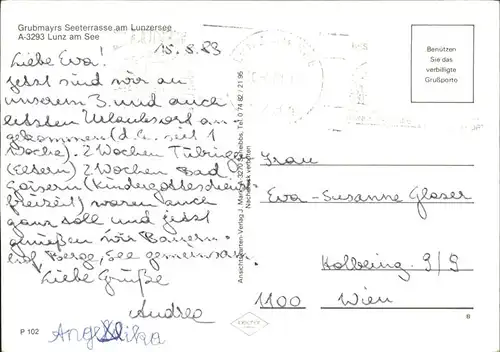 Grubmayrs Seeterrasse am Lunzersee
A-3293 Lunz am See
15.8.83
Liebe Eva!
Jetzt sind wir an
unserem 3. und auch
letzten Urlaubsort an-
gekommen (d.h. seit 1
Woche). 2 Wochen Tübingen
(Eltern) 2 Wochen Bad
Goisern (Kindergottesdienst
freizeit) waren auch
ganz toll und jetzt
genießen wir Bauern-
hof, Berge, See gemeinsam.
Liebe Grüße
Andrea
Angelika
P 102
Ansichtskarten-Verlag J. Mark, A-3270 Scheibbs, Tel. 0 74 82 / 21 95
Nachdruck verboten
Benützen
Sie das
verbilligte
Grußporto
Frau
Eva-Susanne Glaser
Kolbeing. 9/9
1100 Wien
6